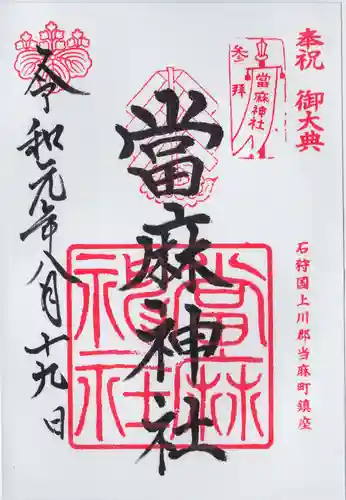 奉祝 御大典
参拝
當麻神社
石狩国上川郡当麻町鎮座
當麻神社
當麻神社
令和元年八月十九日